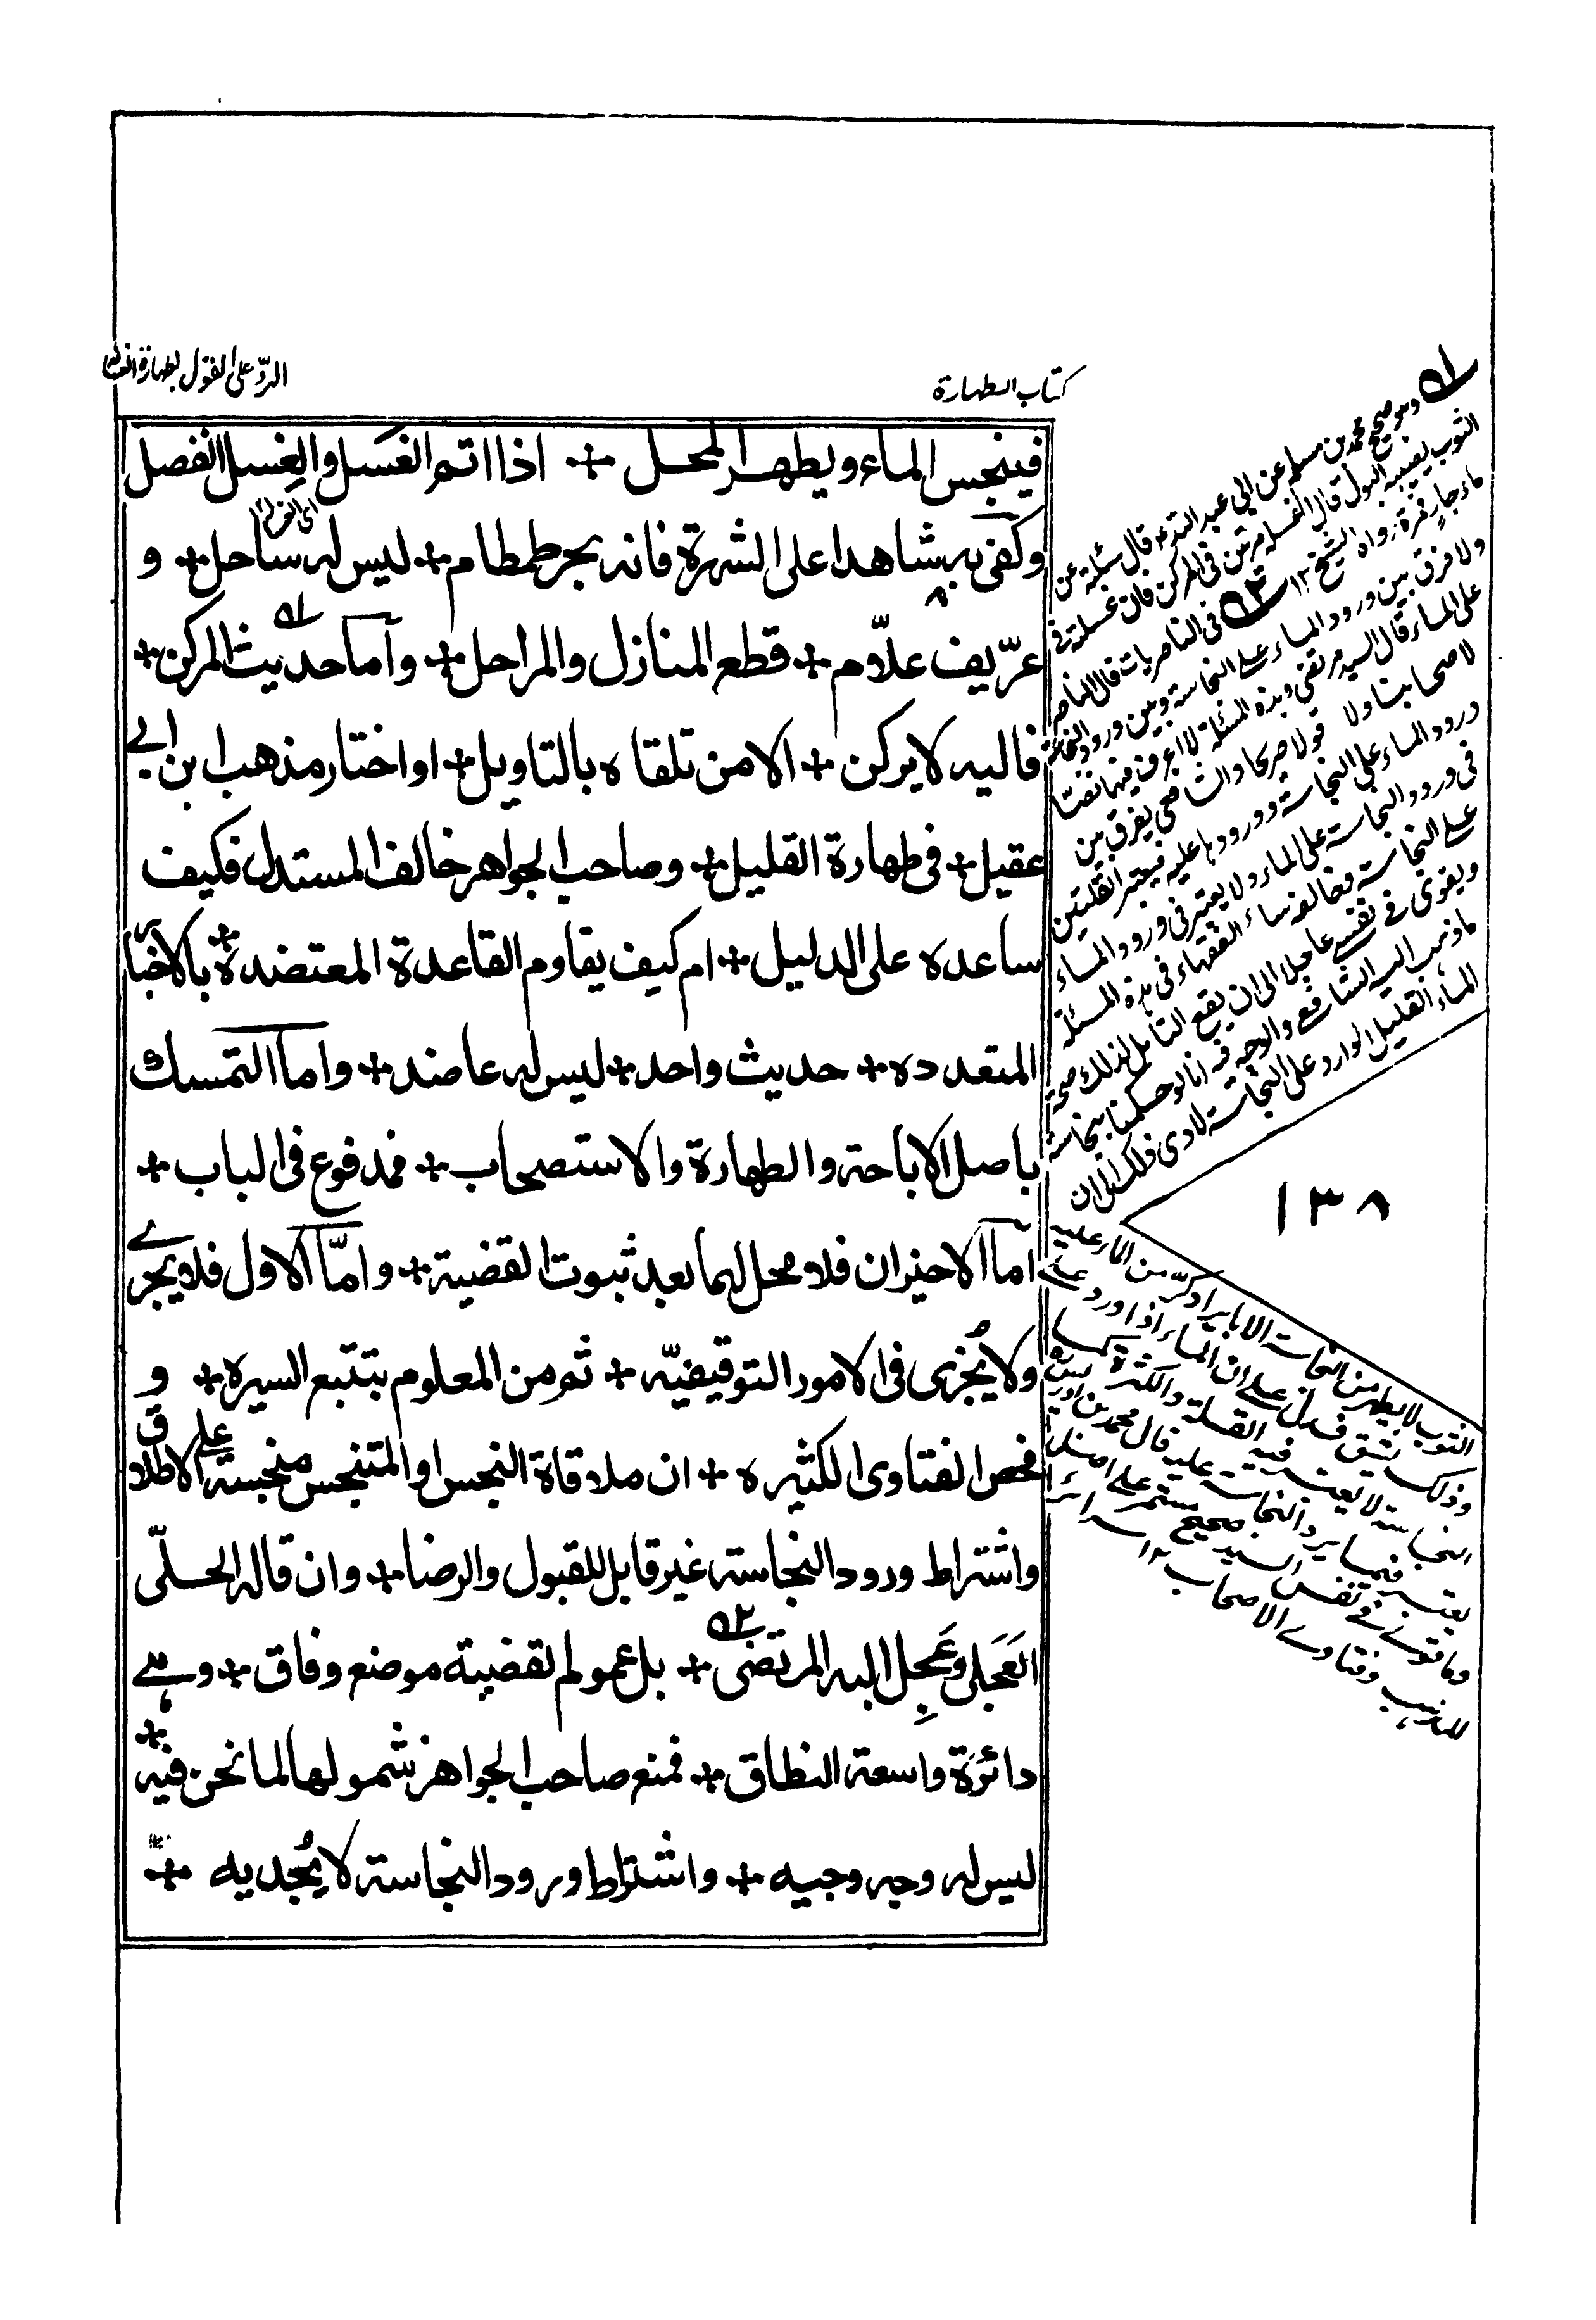 كتاب الطهارة
الردّ على القول بطهارة الغسالة
فينجس الماء ويطهر المحل + اذا اتم الغَسل والغِسل انفصل
وكفى به شاهدا على الشهرة فانه بحر طمطام + ليس له ساحل + و
عرّيف علّام + قطع المنازل والمراحل + وأما حديث المركن +
فاليه لا يركن + الا من تلقاه بالتاويل + او اختار مذهب ابن ابي
عقيل + فى طهارة القليل + وصاحب الجواهر خالف المستدل فكيف
ساعده على الدليل + ام كيف يقاوم القاعدة المعتضدة + بالاخبار
المتعدده + حديث واحد + ليس له عاضد + واما التمسك
باصل الاباحة والطهارة والاستصحاب + فمدفوع فى الباب +
اما الاخيران فلا محل لهما بعد ثبوت القضية + وامّا الاول فلا يجرے
ولا يُجزى فى الامور التوقيفيّه + ثم من المعلوم بتتبع السيره + و
فحص الفتاوى الكثيره + ان ملاقاة النجس او المتنجس منجسة على الاطلاق
واشتراط ورود النجاسة غير قابل للقبول والرضا + وان قاله الحلّى
العَجلى وعَجِل اليه المرتضى + بل عموم القضية موضع وفاق + وهى
دائرة واسعة النطاق + فمنع صاحب الجواهر شمولها لما نحن فيه +
ليس له وجه وجيه + واشتراط ورود النجاسة لا يُجديه +
وهو صحيح محمد بن مسلم عن ابى عبد الله ع قال سئلته عن
الثوب يصيبه البول قال اغسله مرتين فى المركن فان غسلته فى
ماء جارٍ فمرة رواه الشيخ ١٢ فى الناصريات قال الناصر
ولا فرق بين ورود الماء على النجاسة وبين ورود النجاسة
على الماء قال السيد مرتضى وهذه المسئلة لا اعرف فيها نصّا
لاصحابنا ولا قولا صريحا والشافعى يفرق بين
ورود الماء على النجاسة وورودها عليه فيعتبر القلتين
فى ورود النجاسة على الماء ولا يعتبر فى ورود الماء
على النجاسة وخالفه سائر الفقهاء فى هذه المسئلة
ويقوى فى نفسى عاجلا الى ان يقع التامل لذلك صحة
ما ذهب اليه الشافعى والوجه فيه انا لو حكمنا بنجاسة
الماء القليل الوارد على النجاسة لادى ذلك الى ان
١٣٨
الثوب لا يطهر من النجاسة الا بايراد كرّ من الماء عليه
وذلك يشق فدل على ان الماء اذا ورد على
النجاسة لا يعتبر فيه القلة والكثرة كما
يعتبر فيما يرد النجاسة عليه قال محمد بن ادريس
وما قوى فى نفس السيد صحيح مستمر على اصل
المذهب وفتاوے الاصحاب ١٢ سرائر